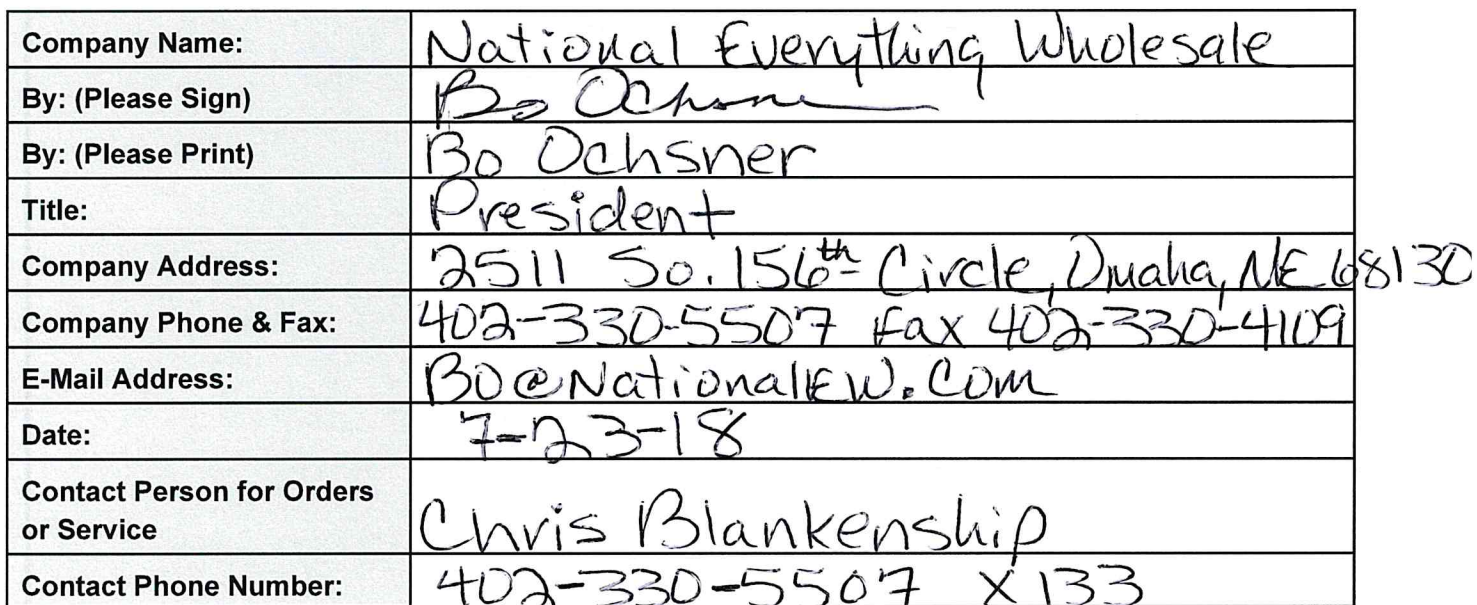 Company Name: National Everything Wholesale
By: (Please Sign) Bo Ochsner
By: (Please Print) Bo Ochsner
Title: President
Company Address: 2511 So. 156th Circle, Omaha, NE 68130
Company Phone & Fax: 402-330-5507 Fax 402-330-4109
E-Mail Address: BO@NationalEW.Com
Date: 7-23-18
Contact Person for Orders
or Service Chris Blankenship
Contact Phone Number: 402-330-5507 X133